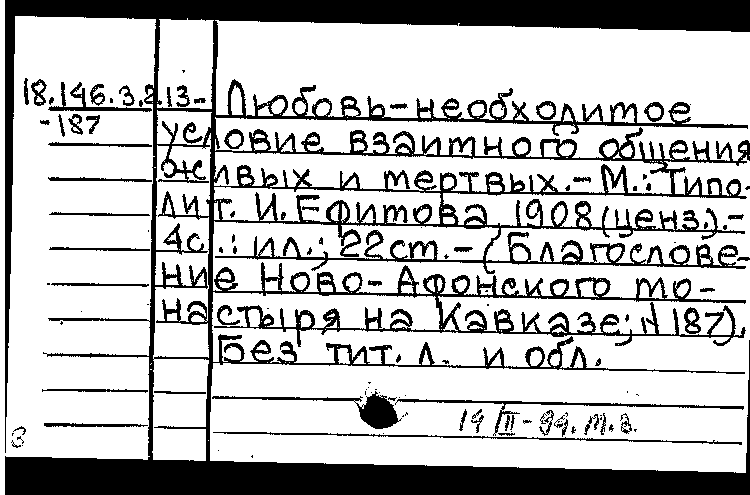 18.146.3.2.13- Любовь-необходимое
-187 условие взаимного общения
живых и мертвых.-М.: Типо-
лит. И. Ефимова, 1908 (ценз.).-
4с.: ил.; 22см.-(Благослове-
ние Ново-Афонского мо-
настыря на Кавказе; №187).
Без тит. л. и обл.
19/III-94. М.В.